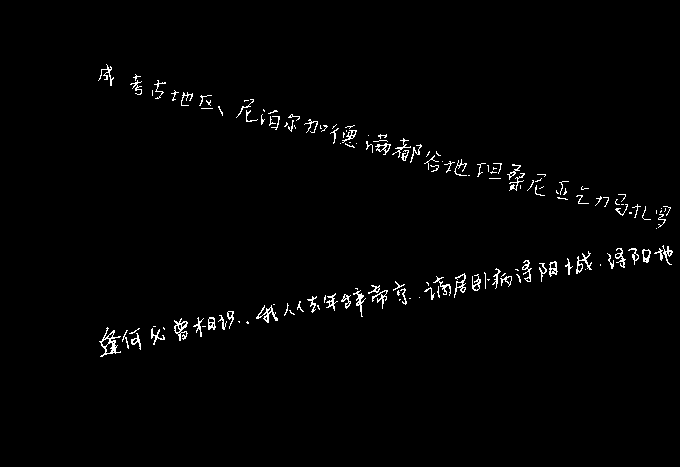 威考古地区、尼泊尔加德满都谷地坦桑尼亚乞力马扎罗
逢何必曾相识.我从去年辞帝京.谪居卧病浔阳城.浔阳地